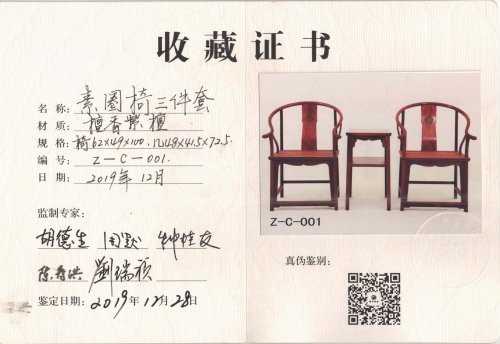 收藏证书
名称：素圈椅三件套
材质：檀香紫檀
规格：椅62×49×100.几48×41.5×72.5.
编号：Z-C-001.
日期：2019年12月
监制专家：
胡德生 周默
刘瑞祯
鉴定日期：2019年12月28日
Z-C-001
真伪鉴别：